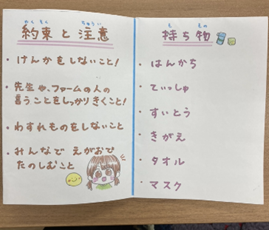 約束と注意
・けんかをしないこと!
・先生や、ファームの人の
言うことをしっかりきくこと!
・わすれものをしないこと
・みんなで えがおで
たのしむこと
持ち物
・はんかち
・てぃっしゅ
・すいとう
・きがえ
・タオル
・マスク